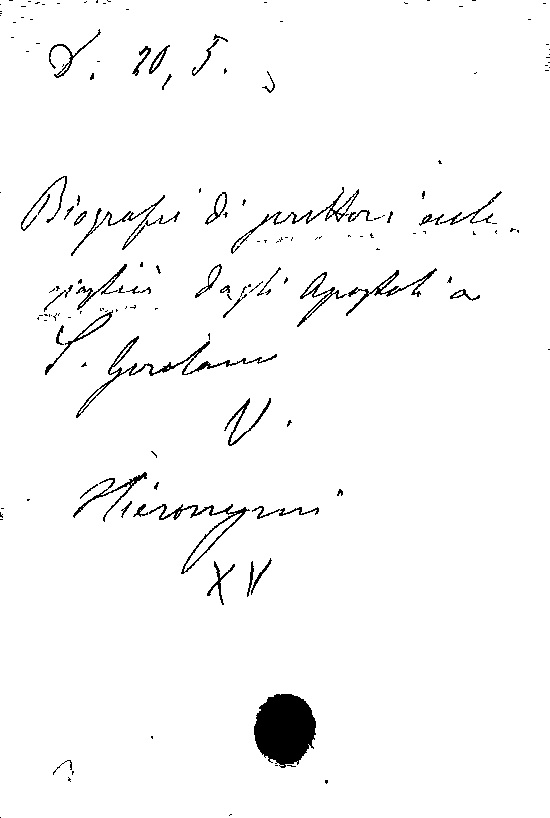 D. 20, 5.
Biografie di scrittori eccle
siastici dagli Apostoli a
S. Girolamo
V.
Hieronymi
XV